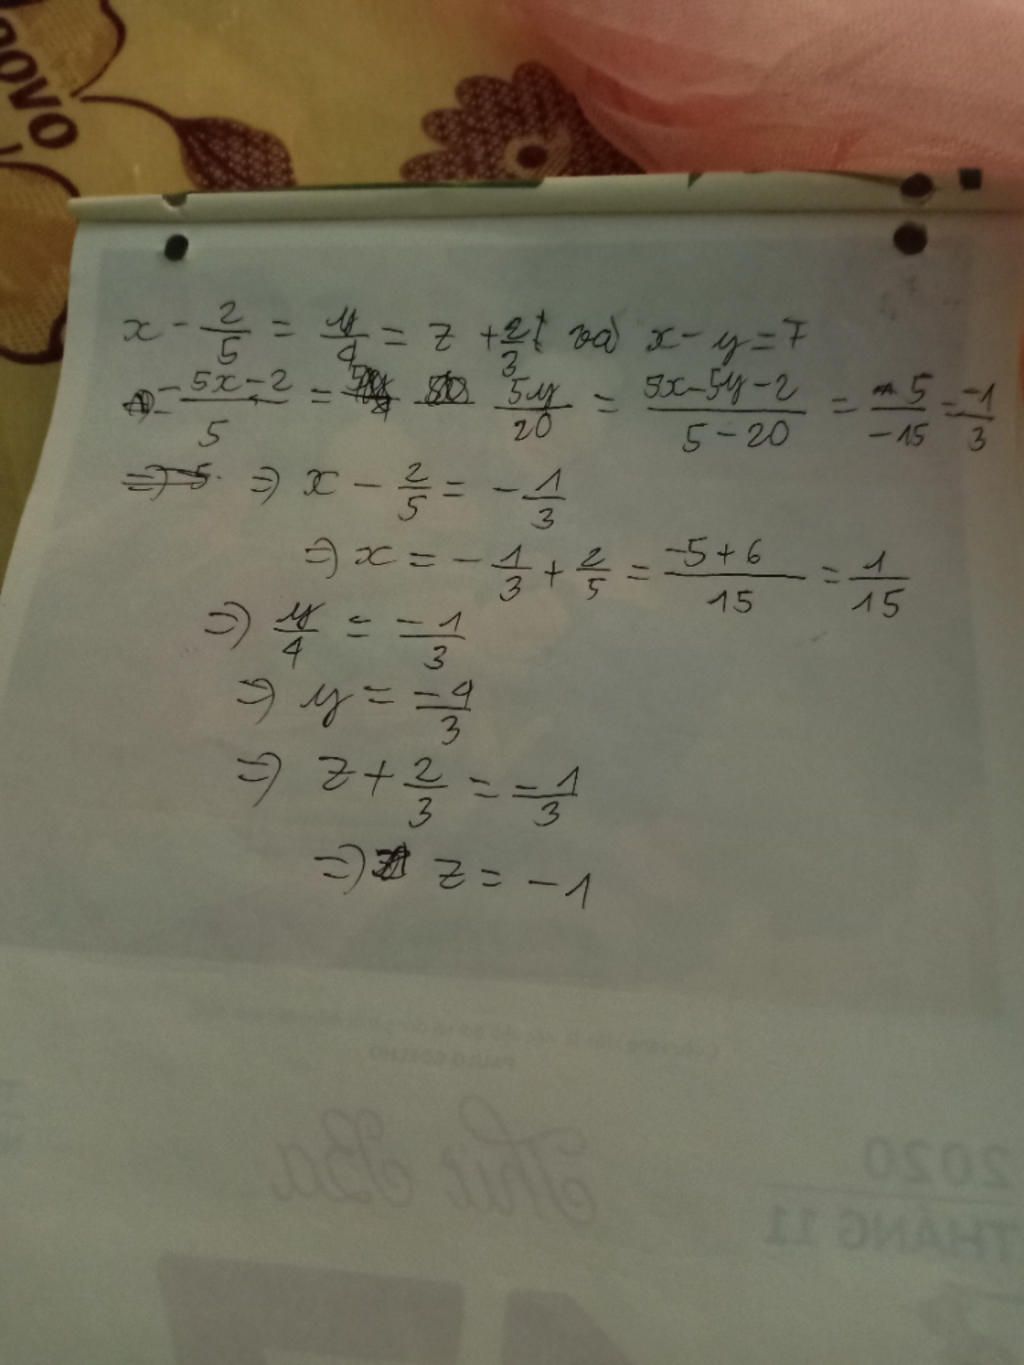 ovo
x - 2/5 = y/4 = z + 2/3 và x - y = 7
5x-2/5 = 5y/20 = 5x-5y-2/5-20 = 5/-15 = -1/3
=> x - 2/5 = -1/3
=> x = -1/3 + 2/5 = -5+6/15 = 1/15
=> y/4 = -1/3
=> y = -4/3
=> z + 2/3 = -1/3
=> z = -1
PAULO COELHO
Thứ Ba
2020
THÁNG 11